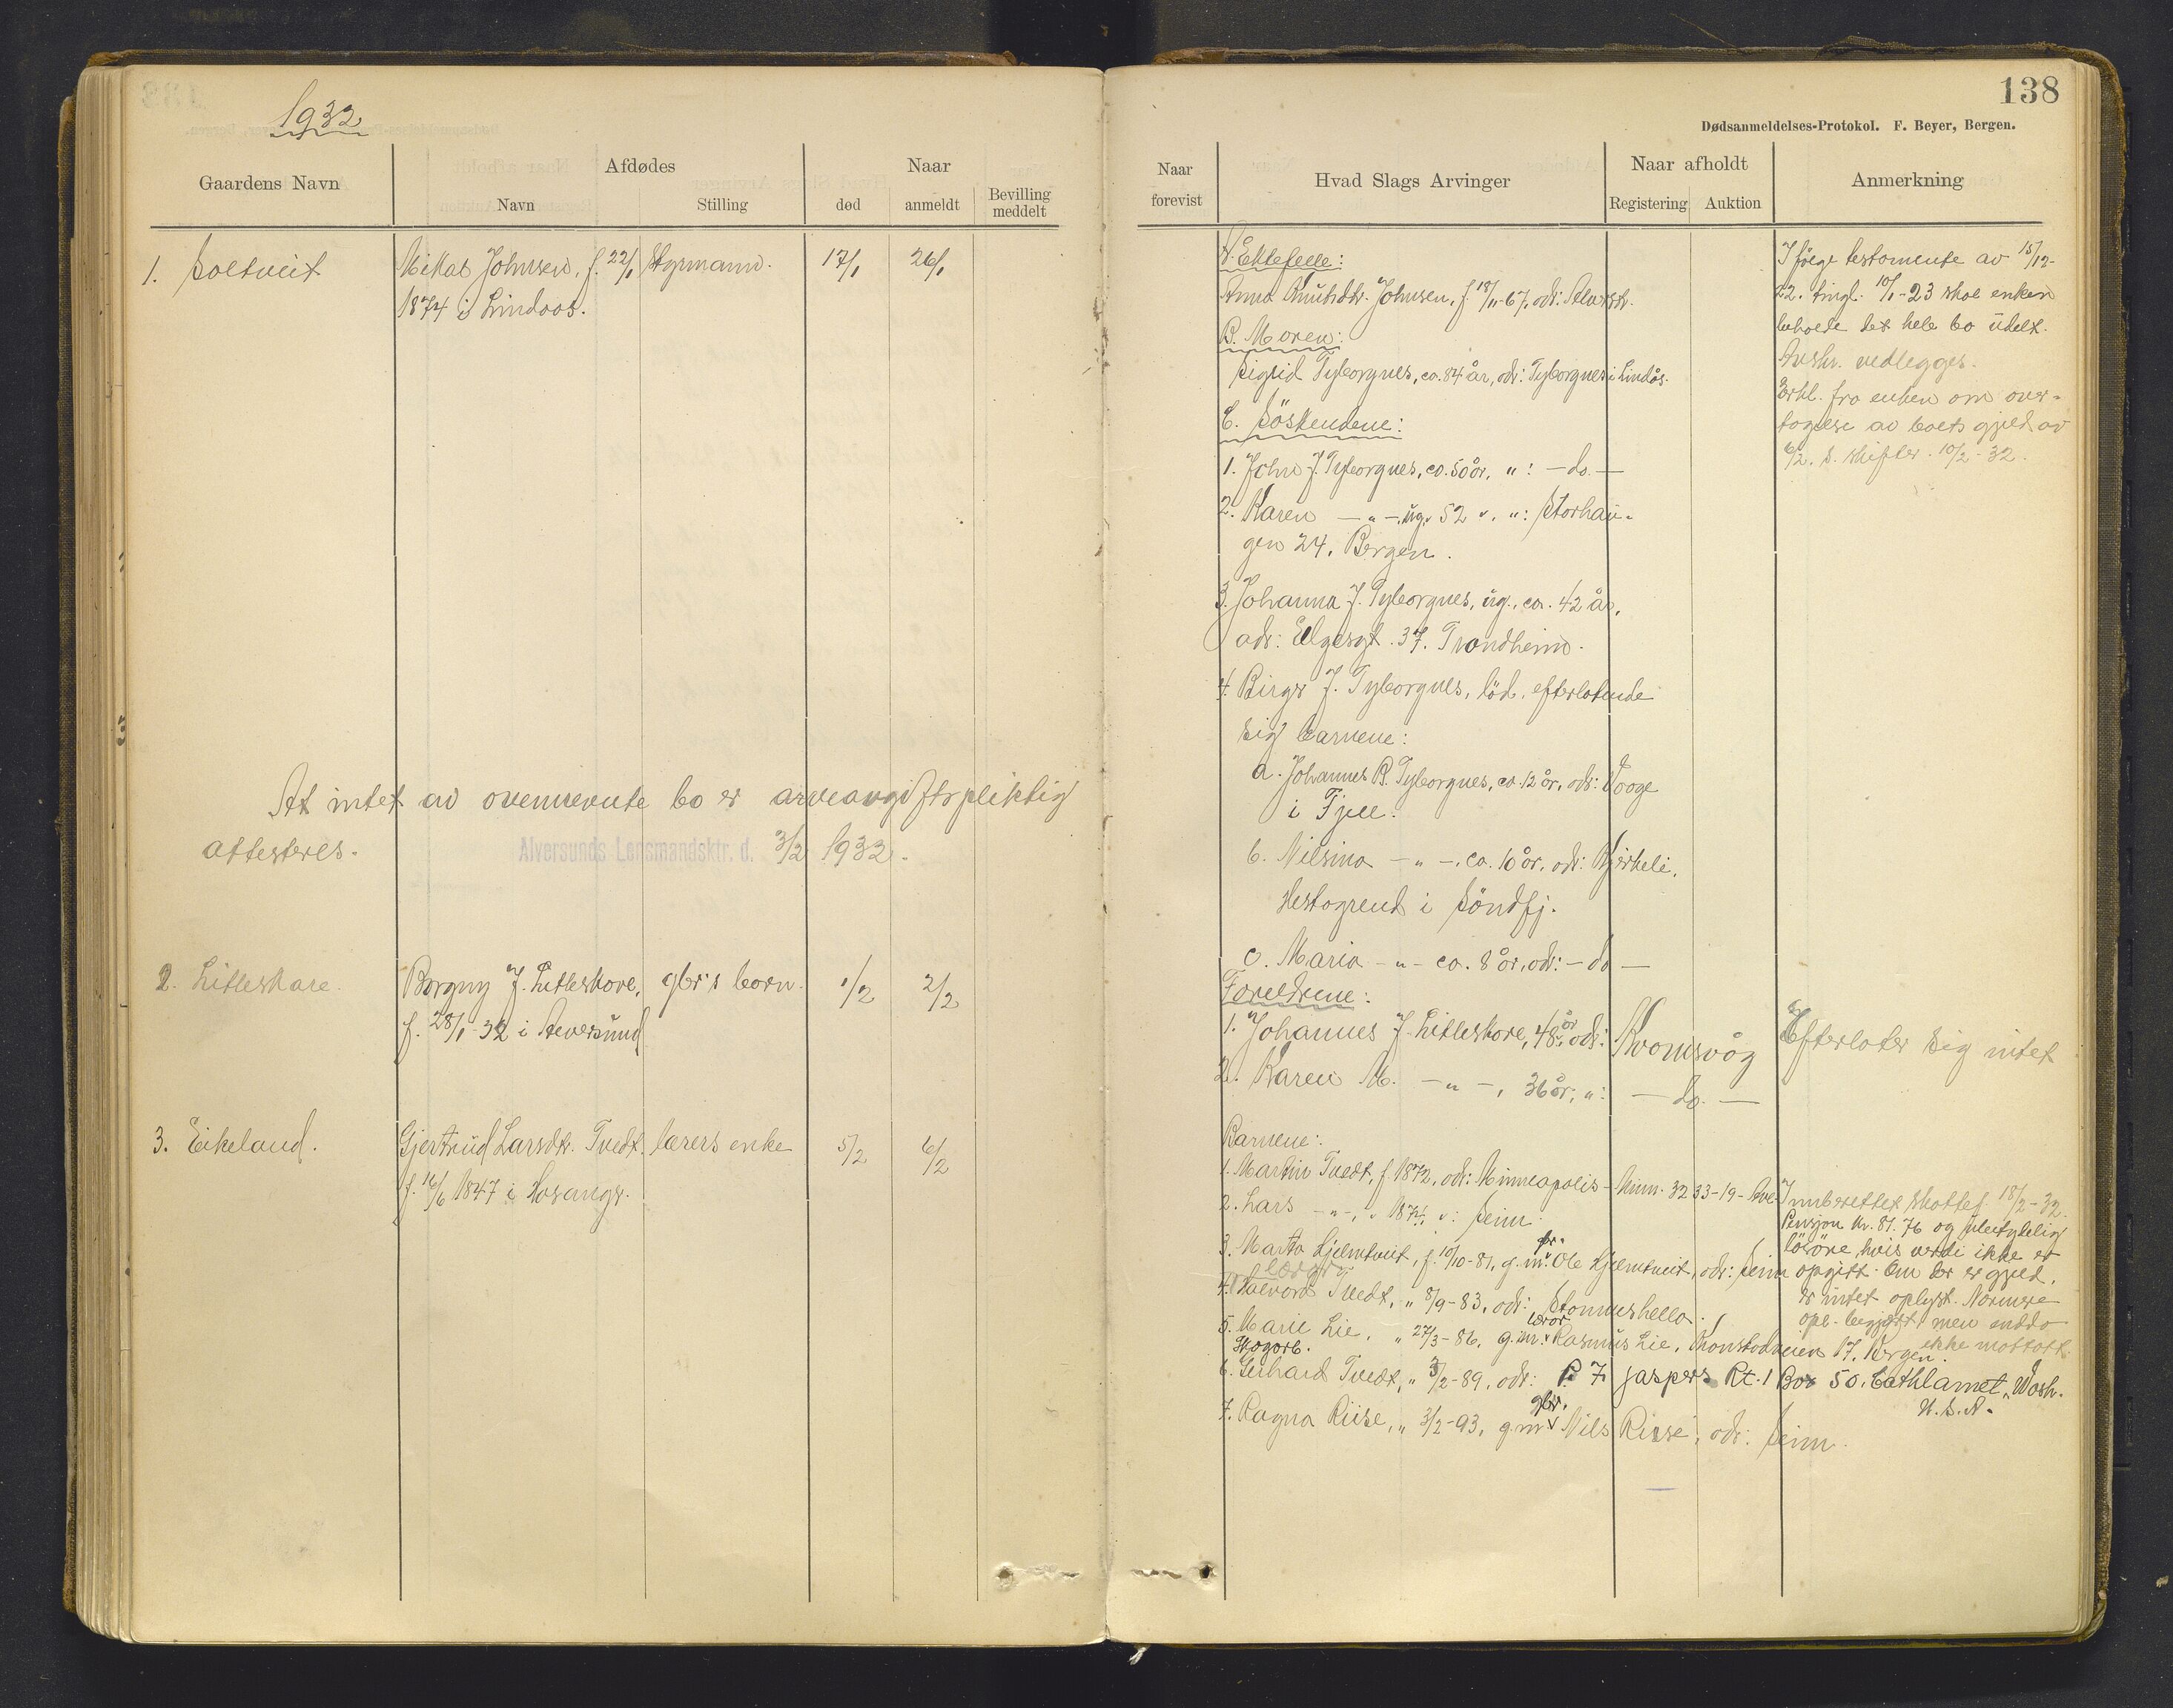 138
Dødsanmeldelses-Protokol. F. Beyer, Bergen.
1932
Gaardens Navn
Afdødes
Navn
Stilling
Naar
død
anmeldt
Bevilling
meddelt
Naar
forevist
Hvad Slags Arvinger
Naar afholdt
Registering
Auktion
Anmerkning
1. Soltveit
Mikal Johnsen, f. 22/1
1874 i Lindaas.
Styrmann.
17/1
26/1
A. Ektefelle:
Anna Knutsdtr. Johnsen, f. 18/11-67, adr: Alverstr.
B. Moren:
Sigrid Tyborgnes, ca. 84 år, adr: Tyborgnes i Lindås.
C. Söskendene:
1. John J. Tyborgnes, ca. 50 år, " : - do. -
2. Karen - " - ug. 52 ", ": Storhau-
gen 24, Bergen.
3. Johanna J. Tyborgnes, ug., ca. 42 år,
adr: Elgesgt. 37. Trondheim.
4. Birger J. Tyborgnes, död, efterlatende
sig barnene:
a. Johannes B. Tyborgnes, ca. 12 år, adr:
i Fjell.
b. Nilsina - " -, ca. 10 år, adr: Kjerheli,
i Söndfj.
c. Maria - " - ca. 8 år, adr: - do -
Ifölge testamente av 15/12-
22. tingl. 10/1-23 skal enken
beholde det hele bo udelt.
Avskr. vedlegges.
Erkl. fra enken om over-
tagelse av boets gjeld av
6/2. S. skifter. 10/2-32.
At intet av ovennevnte bo er arveavgiftspliktig
attesteres.
Alversunds Lensmandsktr. d. 3/2 1932.
2. Litleskare.
Borgny J. Litleskare,
f. 28/1-32 i Alversund
gbr's barn.
1/2
2/2
Foreldrene:
1. Johannes J. Litleskare, 48 år, adr: Kvamsvåg
2. Karen M. - " -, 36 år, ": - do. -
Efterlater sig intet
3. Eikeland.
Gjertrud Larsdtr. Tvedt.
f. 16/6 1847 i Hosanger.
lærers enke
5/2
6/2
Barnene:
1. Martin Tvedt, f. 1872, adr: Minneapolis - Minn. 3233-19-Ave.
2. Lars - " -, " 1874, ": Seim.
3. Marta Hjelmtveit, f. 10/10-81, g.m. gbr. Ole Hjelmtveit, adr: Seim
4. lærer Halvard Tvedt, " 8/9-83, adr: Stamneshella.
5. Marie Lie, " 27/3-86, g.m. lærer Rasmus Lie, Kronstadveien 17, Bergen.
Skogarb.
6. Gerhard Tvedt, " 3/2-89, adr: P. 7 jaspers Rt. 1 Box 50. Cathlamet, Wash.
U.S.A.
7. Ragna Riise, " 3/2-93, g.m. gbr. Nils Riise, adr: Seim.
Innberettet skattef. 18/2-32.
Pensjon kr. 81.76 og ubetydelig
lösöre, hvis verdi ikke er
opgitt. Om der er gjeld,
er intet oplyst. Nærmere
opl. begjært men endda
ikke mottatt.